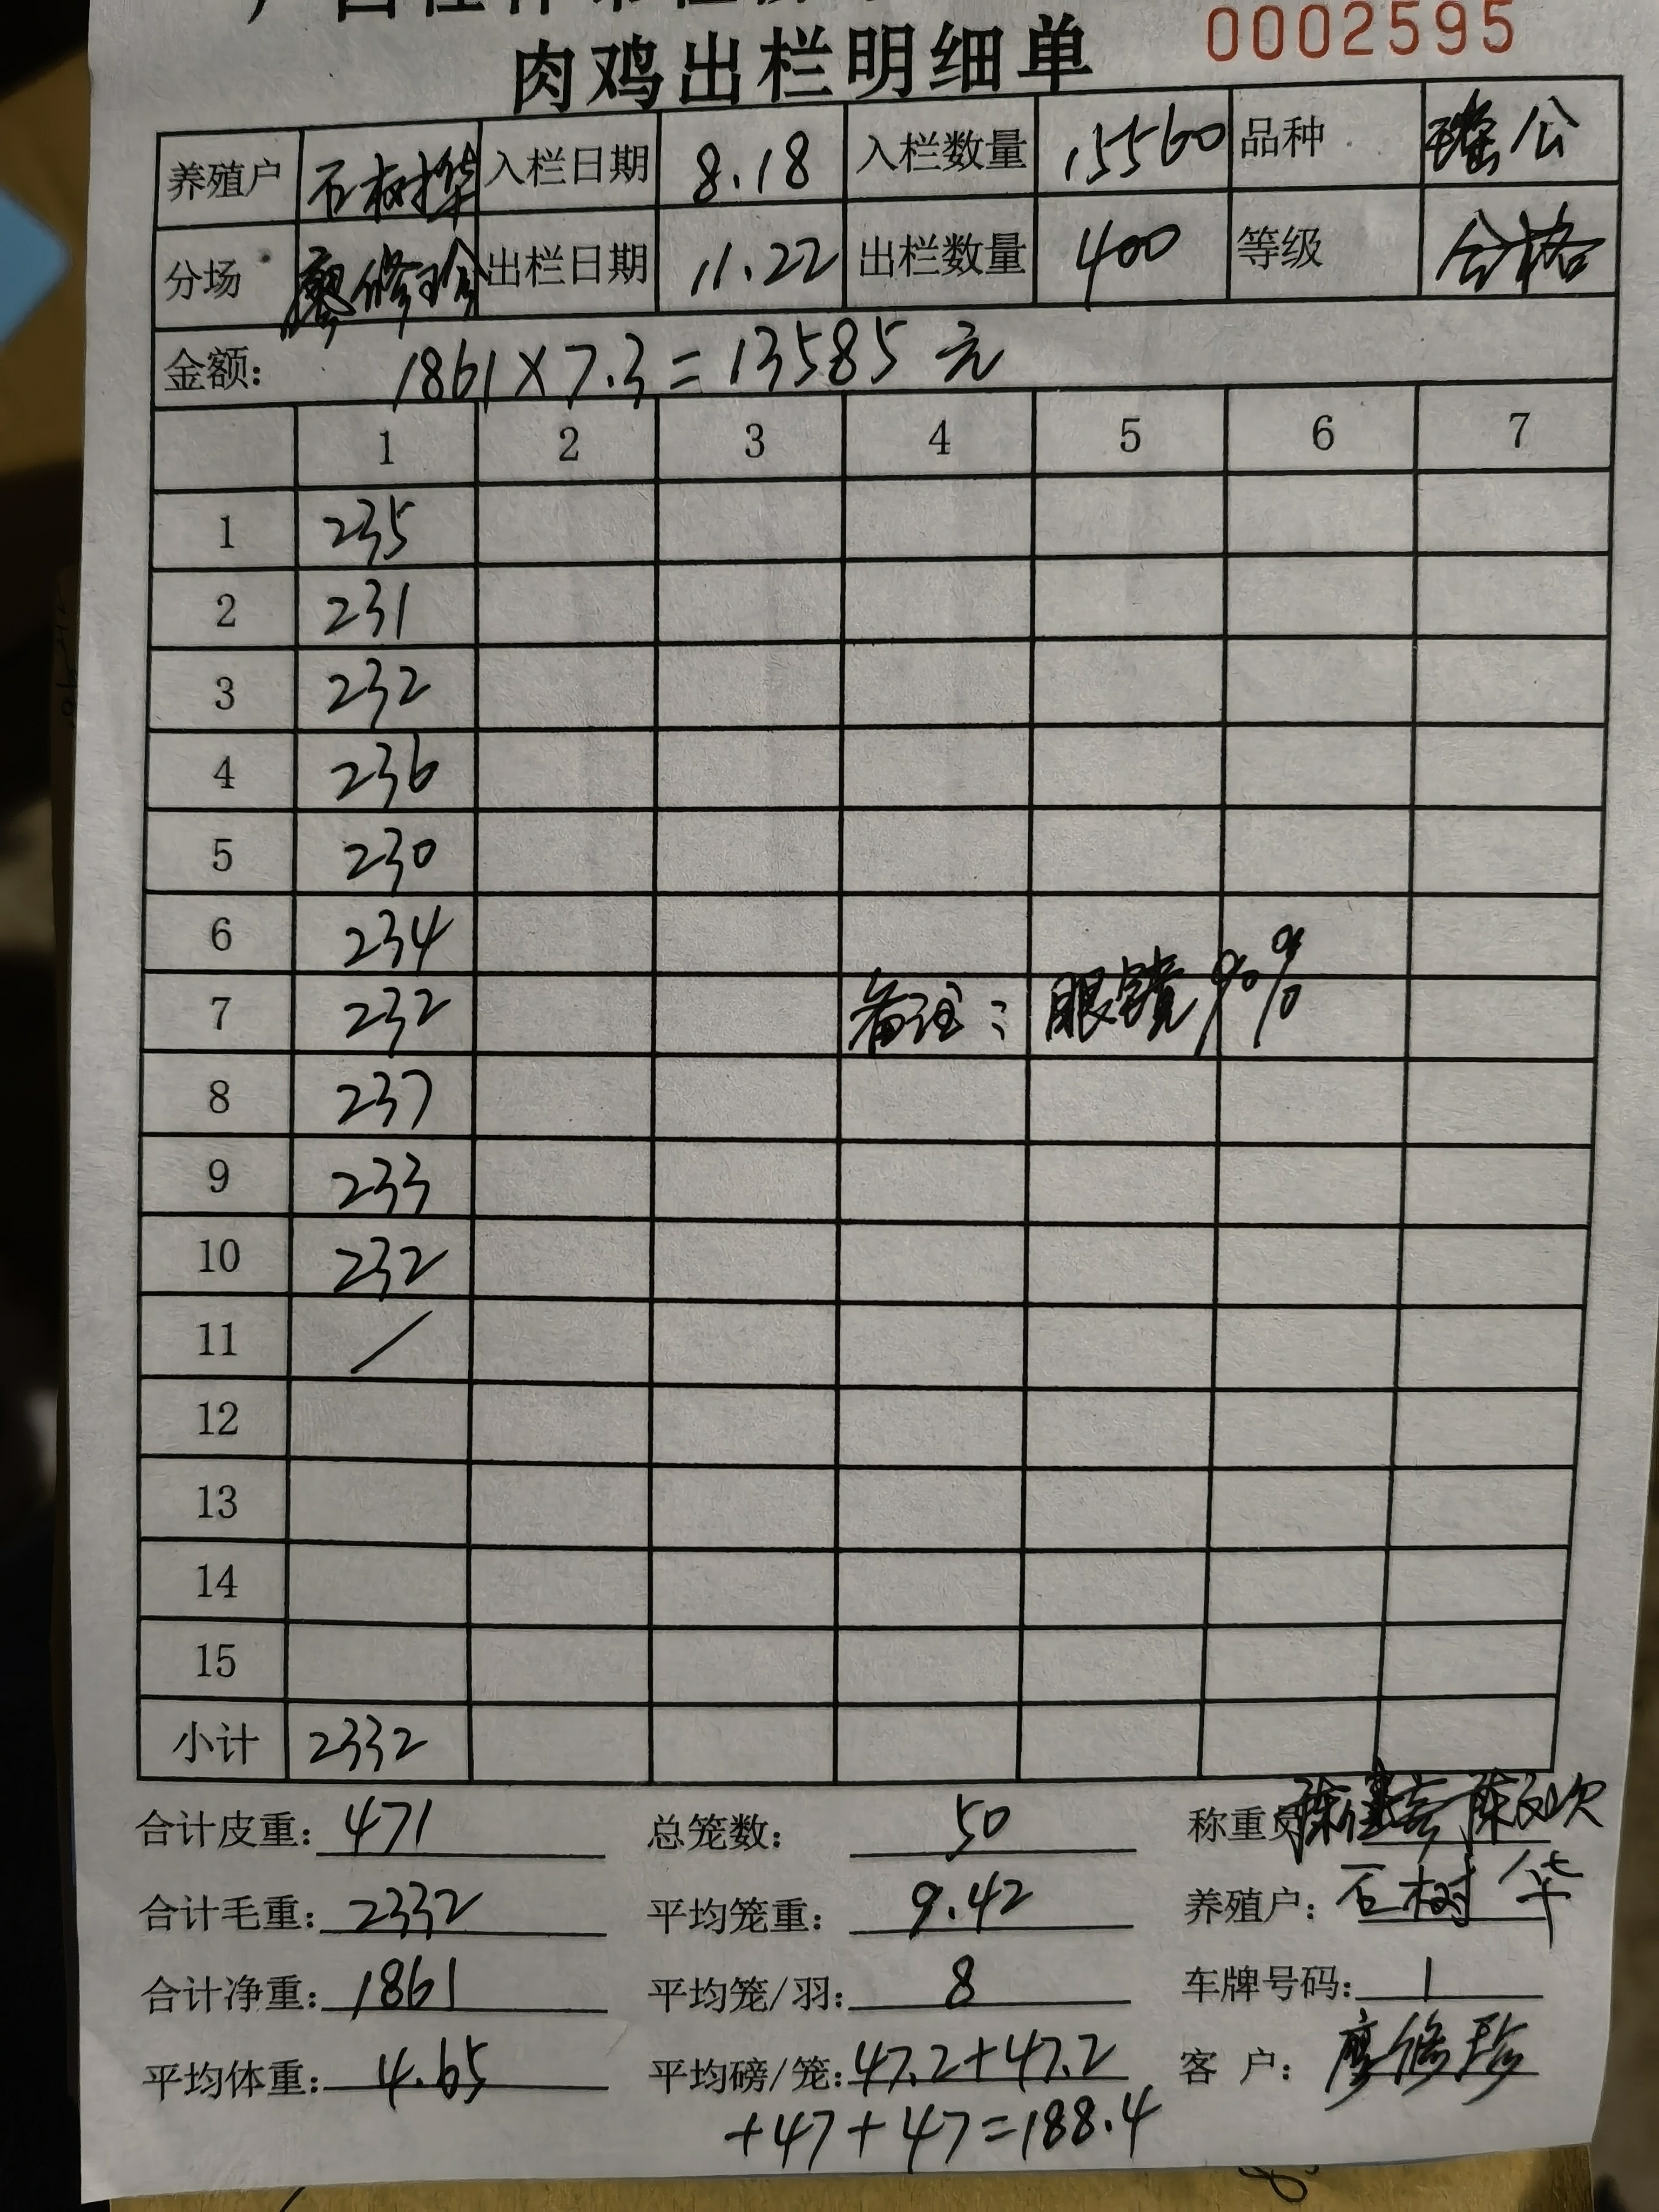 肉鸡出栏明细单 0002595
养殖户 石树华 入栏日期 8.18 入栏数量 15560 品种 瑶公
分场 廖修珍 出栏日期 11.22 出栏数量 400 等级 合格
金额: 1861×7.3=13585元
1 2 3 4 5 6 7
1 235
2 231
3 232
4 236
5 230
6 234
7 232 备注: 眼镜90%
8 237
9 233
10 232
11 /
12
13
14
15
小计 2332
合计皮重: 471 总笼数: 50 称重员
合计毛重: 2332 平均笼重: 9.42 养殖户: 石树华
合计净重: 1861 平均笼/羽: 8 车牌号码: 1
平均体重: 4.65 平均磅/笼: 47.2+47.2 客 户: 廖修珍
+47+47=188.4